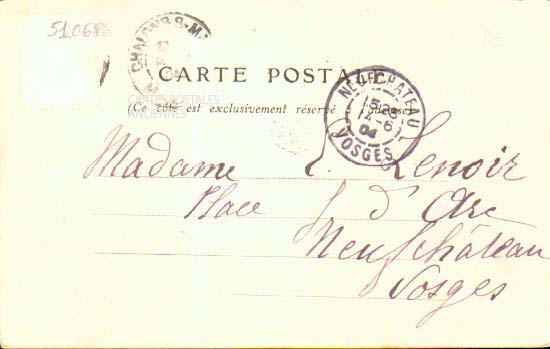 510686
CHALONS-S-M
CARTE POSTALE
CARTES POSTALES
ANCIENNES
Ce côté est exclusivement réservé à l'adresse
NEUFCHATEAU
04
VOSGES
Madame L. Lenoir
Place J. d'Arc
Neufchâteau
Vosges